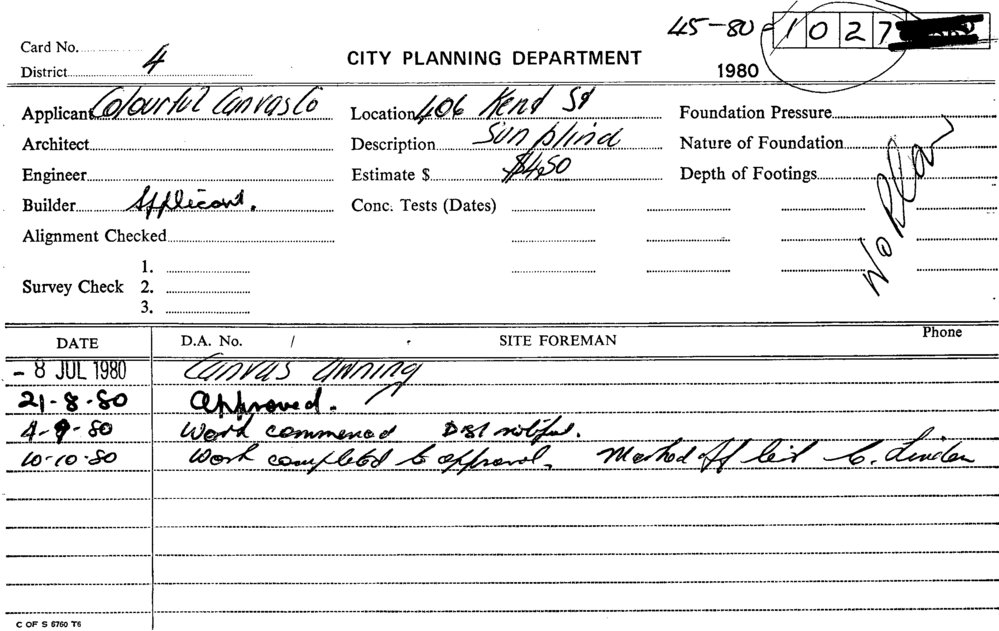 45-80-1027
Card No.
District 4
CITY PLANNING DEPARTMENT
1980
Applicant Colourful Canvas Co
Location 406 Kent St
Foundation Pressure
Architect
Description Sun blind
Nature of Foundation
Engineer
Estimate $ $450
Depth of Footings
Builder Applicant.
Conc. Tests (Dates)
No Plan
Alignment Checked
Survey Check
1.
2.
3.
DATE D.A. No. / SITE FOREMAN Phone
- 8 JUL 1980 Canvas Awning
21-8-80 Approved.
4-9-80 Work commenced
10-10-80 Work completed to approval. Marked off list
C OF S 6760 T6